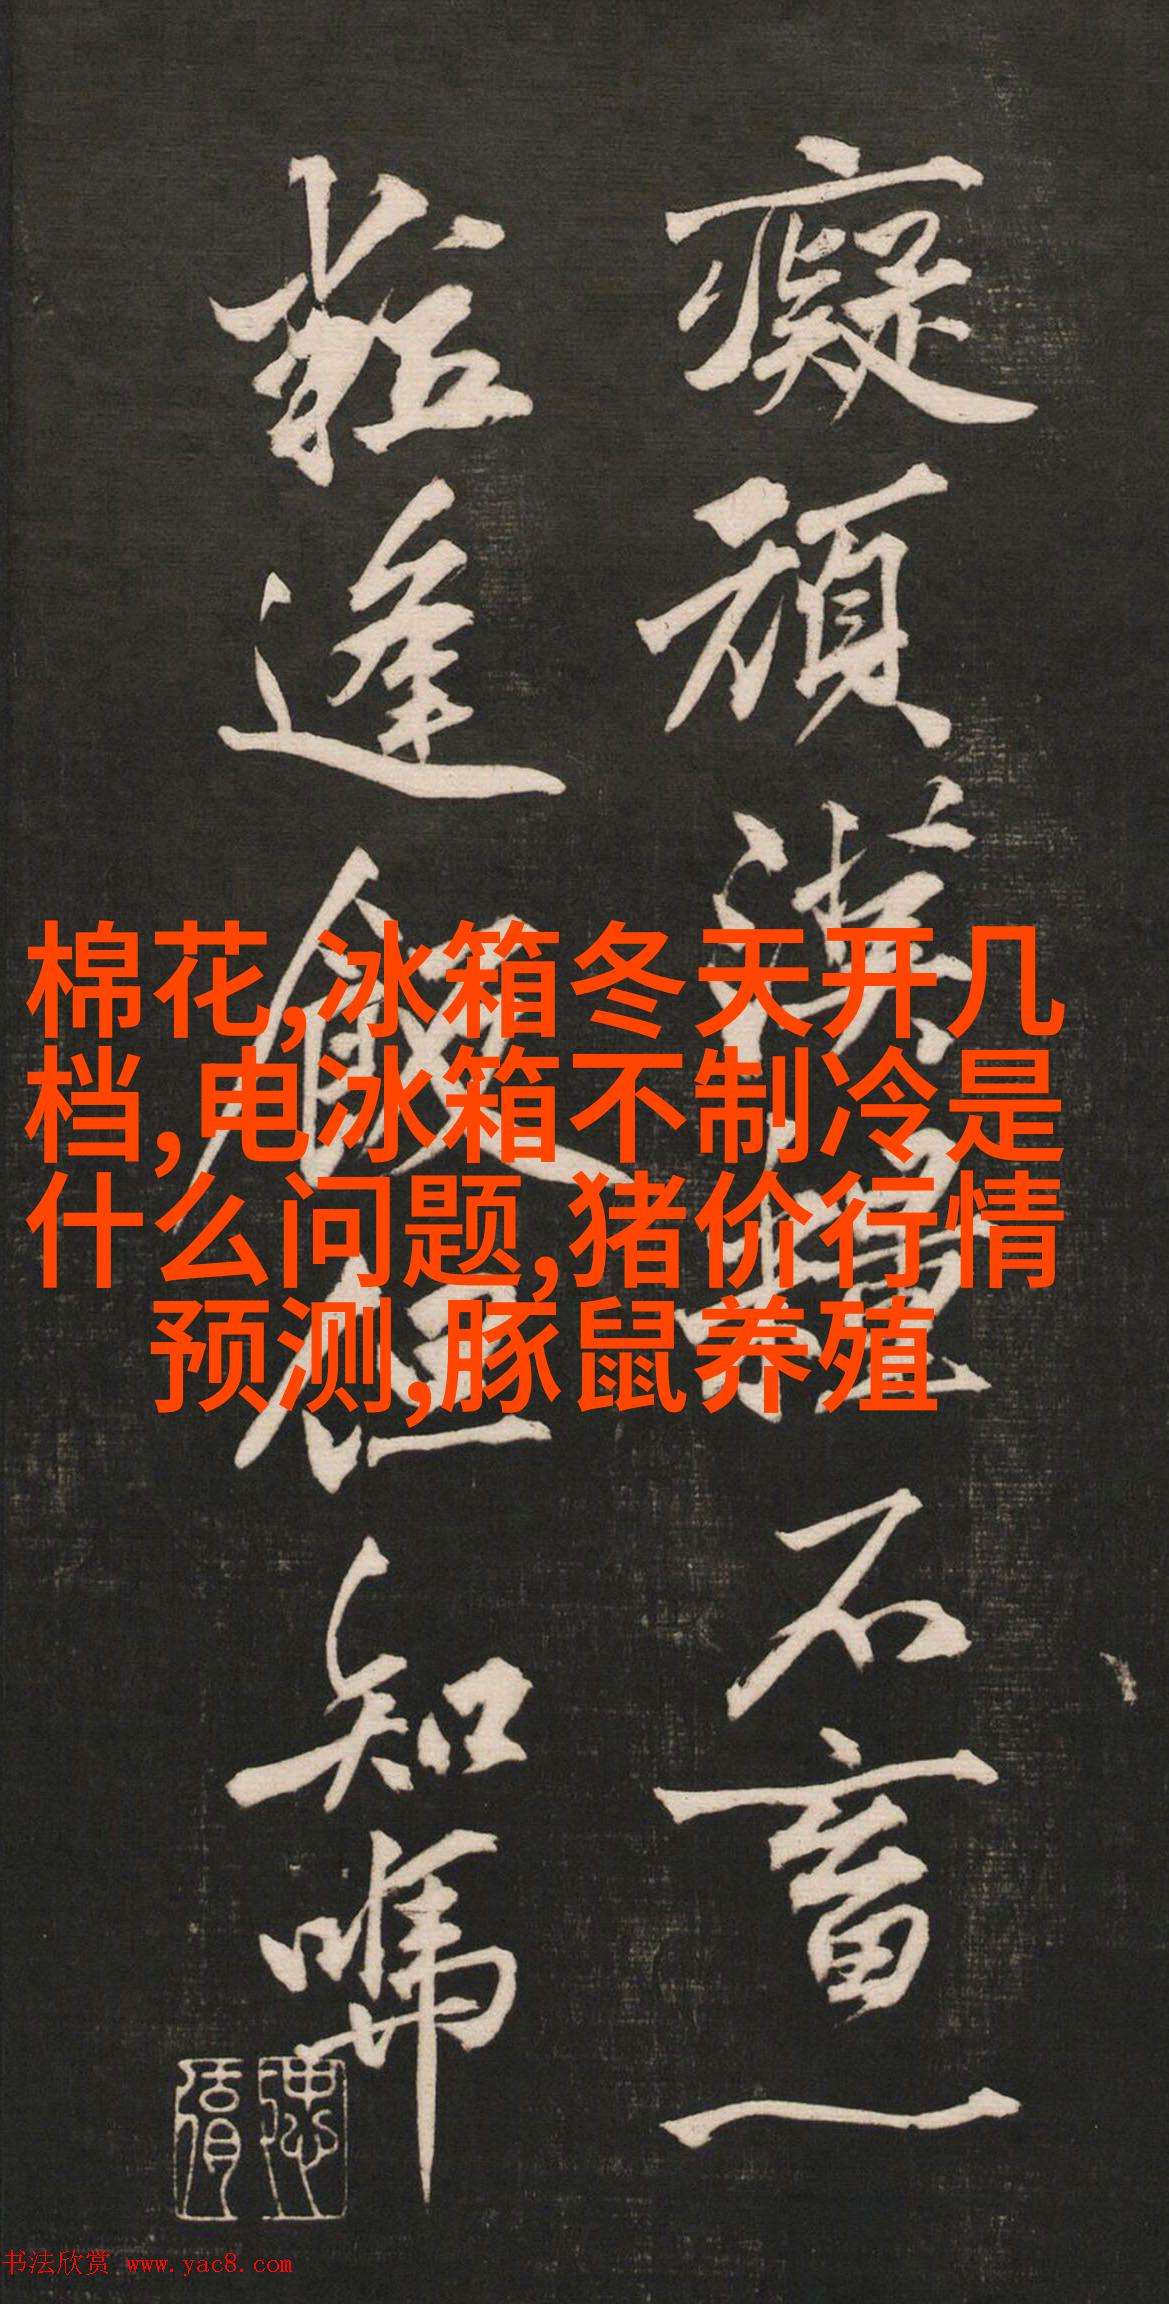 癡頑漢石畜一
逢但知
棉花,冰箱冬天开几
档,电冰箱不制冷是
什么问题,猪价行情
预测,豚鼠养殖
书法欣赏 www.yac8.com